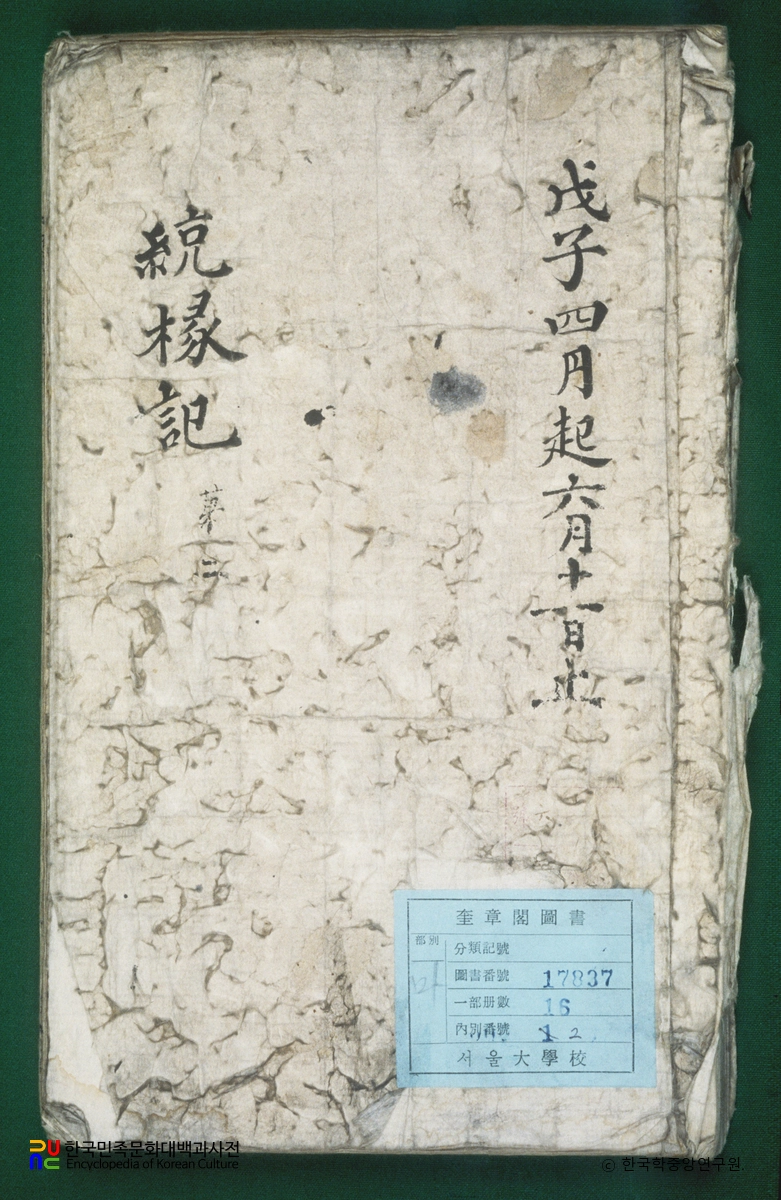 戊子四月起六月十一日止
統椽記
苐二
奎章閣圖書
部別
分類記號
圖書番號 17837
一部册數 16
內別番號 2
서울大學校
한국민족문화대백과사전
Encyclopedia of Korean Culture
© 한국학중앙연구원.